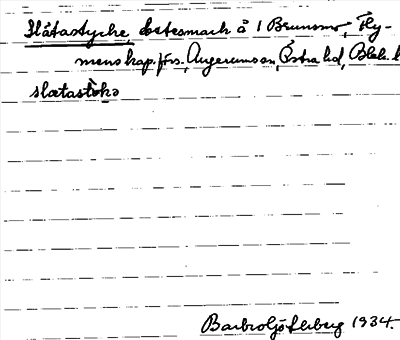 Slåtastycke, betesmark å 1 Brunsmo, Fly-
menskap.förs., Augerums sn, Östra hd, Blek. l
slætastök̀ə
Barbro Ljöferberg 1934.